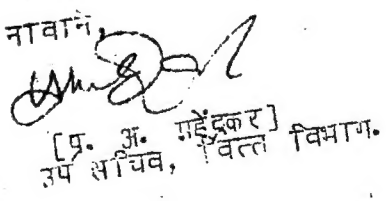 नावाने,
[प्र. अ. गहेंद्रकर]
उप सचिव, वित्त विभाग.